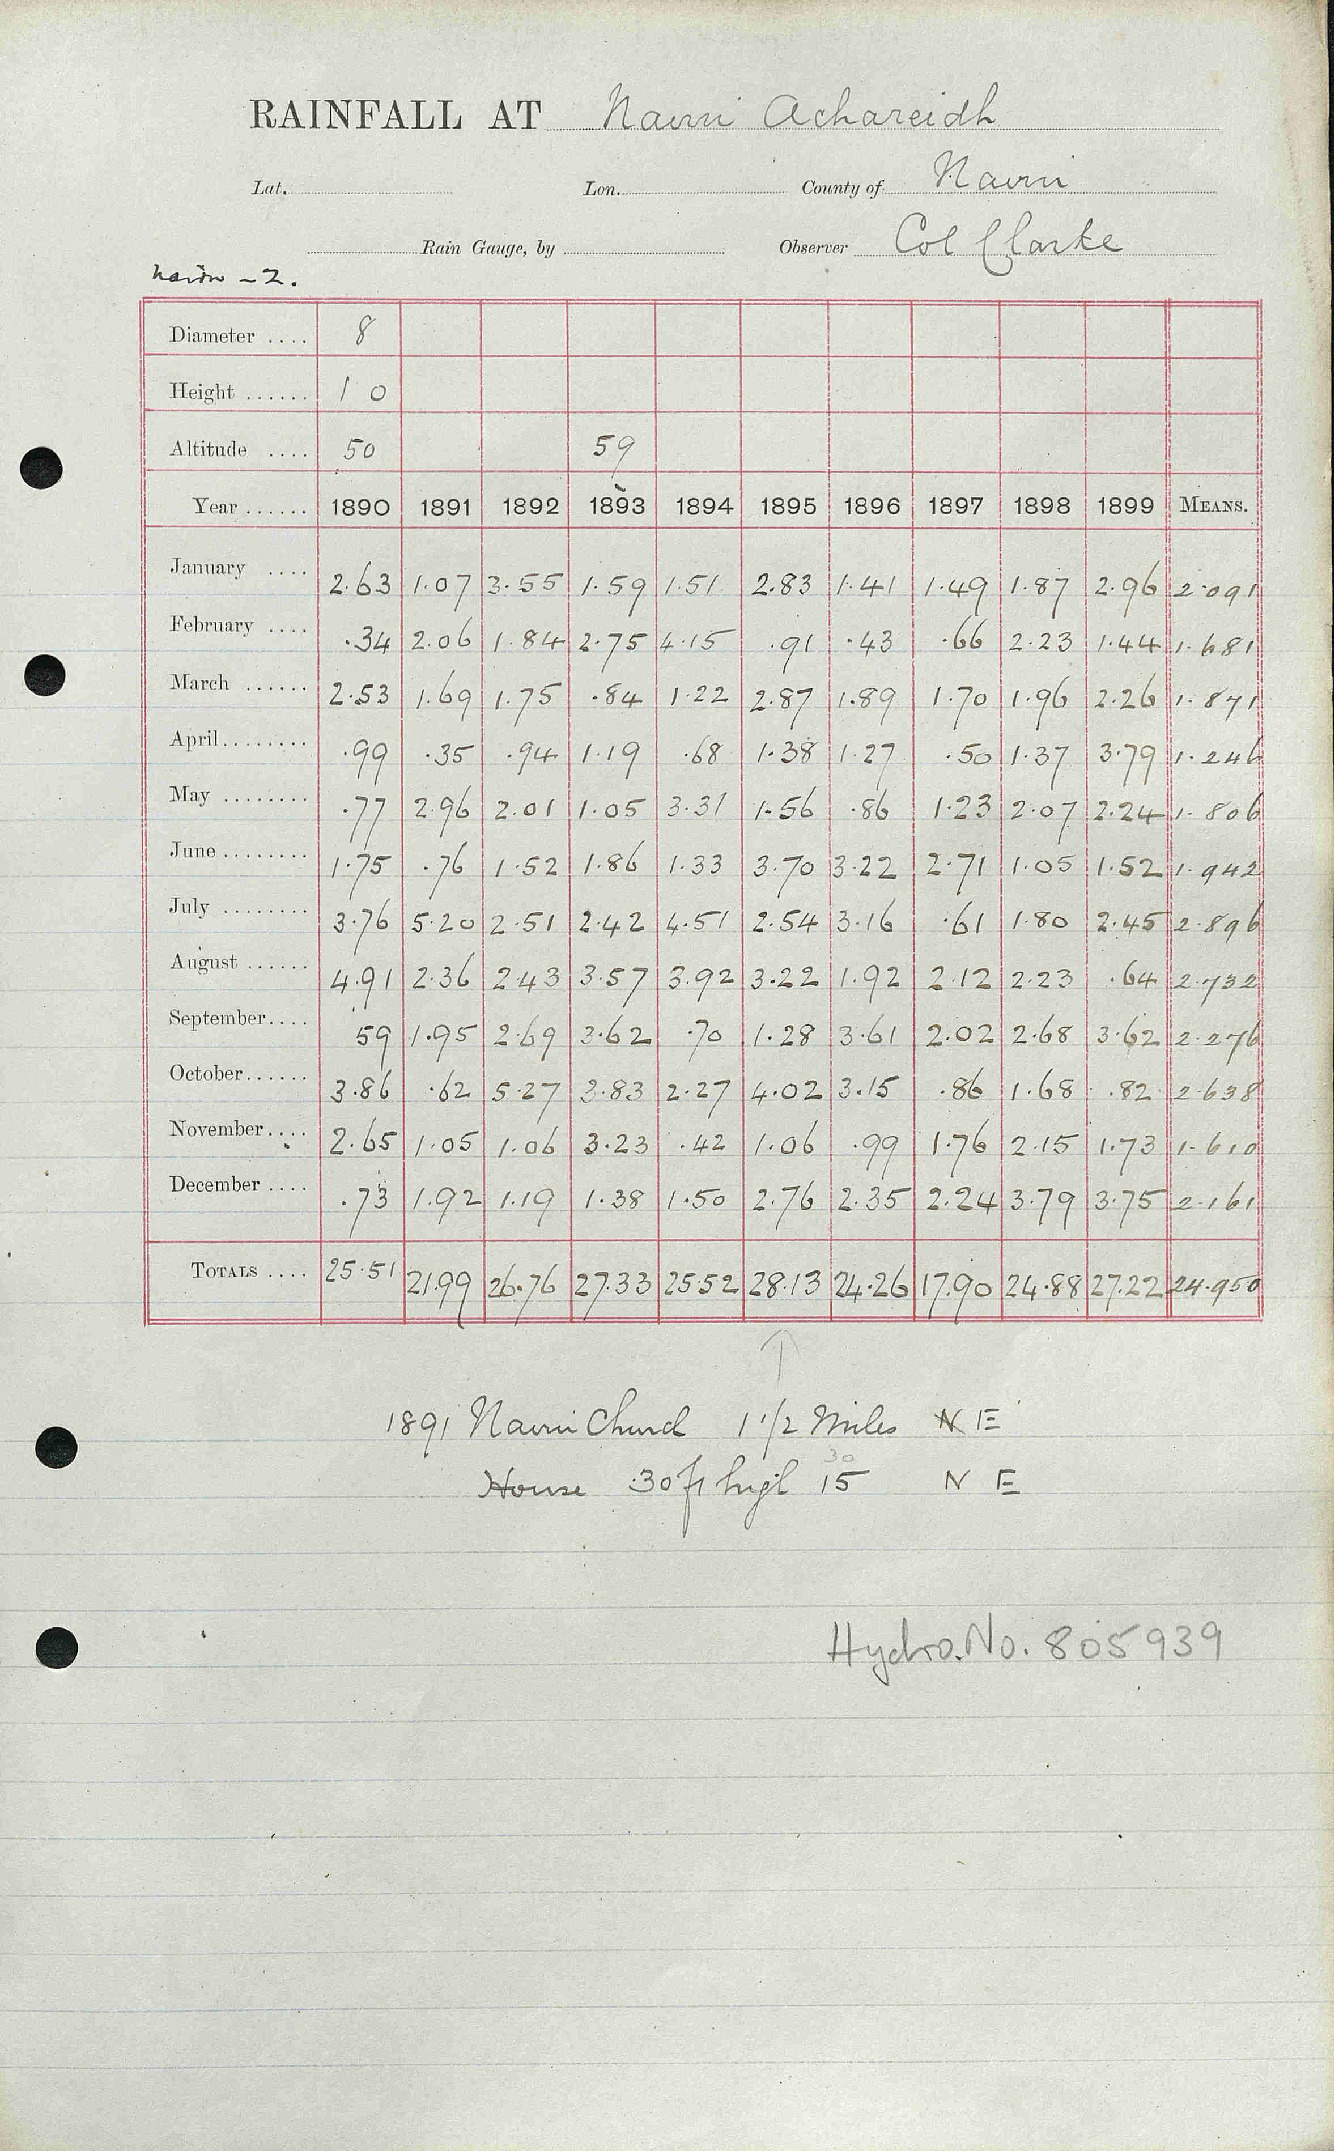 RAINFALL AT Nairn Achareidh
Lat. Lon. County of Nairn
Rain Gauge, by Observer Col Clarke
Nairn - 2.
Diameter .... 8
Height ...... 1 0
Altitude .... 50 59
Year ...... 1890 1891 1892 1893 1894 1895 1896 1897 1898 1899 MEANS.
January .... 2.63 1.07 3.55 1.59 1.51 2.83 1.41 1.49 1.87 2.96 2.091
February .... .34 2.06 1.84 2.75 4.15 .91 .43 .66 2.23 1.44 1.681
March ...... 2.53 1.69 1.75 .84 1.22 2.87 1.89 1.70 1.96 2.26 1.871
April........ .99 .35 .94 1.19 .68 1.38 1.27 .50 1.37 3.79 1.246
May ........ .77 2.96 2.01 1.05 3.31 1.56 .86 1.23 2.07 2.24 1.806
June ........ 1.75 .76 1.52 1.86 1.33 3.70 3.22 2.71 1.05 1.52 1.942
July ........ 3.76 5.20 2.51 2.42 4.51 2.54 3.16 .61 1.80 2.45 2.896
August ...... 4.91 2.36 2.43 3.57 3.92 3.22 1.92 2.12 2.23 .64 2.732
September.... 59 1.95 2.69 3.62 .70 1.28 3.61 2.02 2.68 3.62 2.276
October...... 3.86 .62 5.27 3.83 2.27 4.02 3.15 .86 1.68 .82 2.638
November.... 2.65 1.05 1.06 3.23 .42 1.06 .99 1.76 2.15 1.73 1.610
December .... .73 1.92 1.19 1.38 1.50 2.76 2.35 2.24 3.79 3.75 2.161
TOTALS .... 25.51 21.99 26.76 27.33 25.52 28.13 24.26 17.90 24.88 27.22 24.950
1891 Nairn Church 1 1/2 Miles N E
30
House 30 ft high 15 N E
Hydro. No. 805939